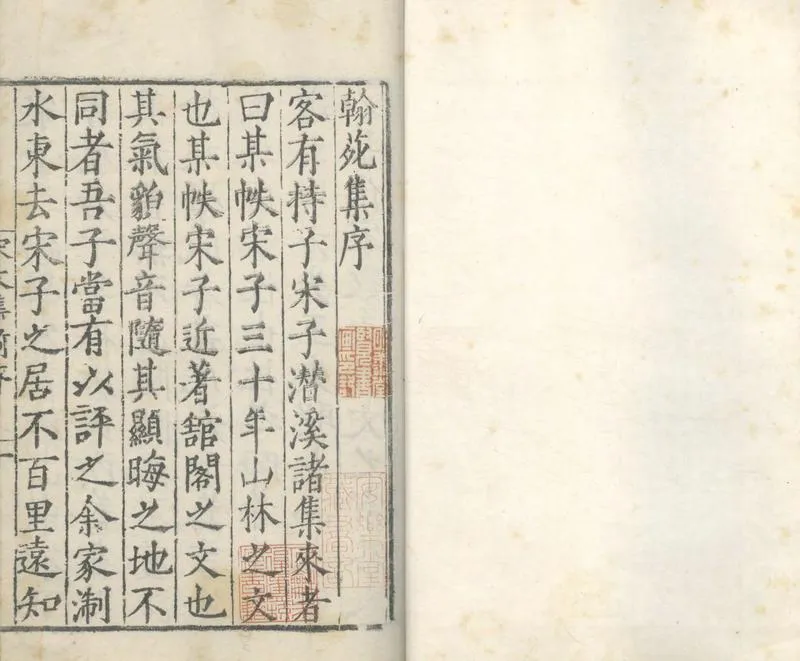 翰苑集序
客有持子宋子濳溪諸集來者
曰某帙宋子三十年山林之文
也某帙宋子近著舘閣之文也
其氣貌聲音隨其顯晦之地不
同者吾子當有以評之余家淛
水東去宋子之居不百里遠知